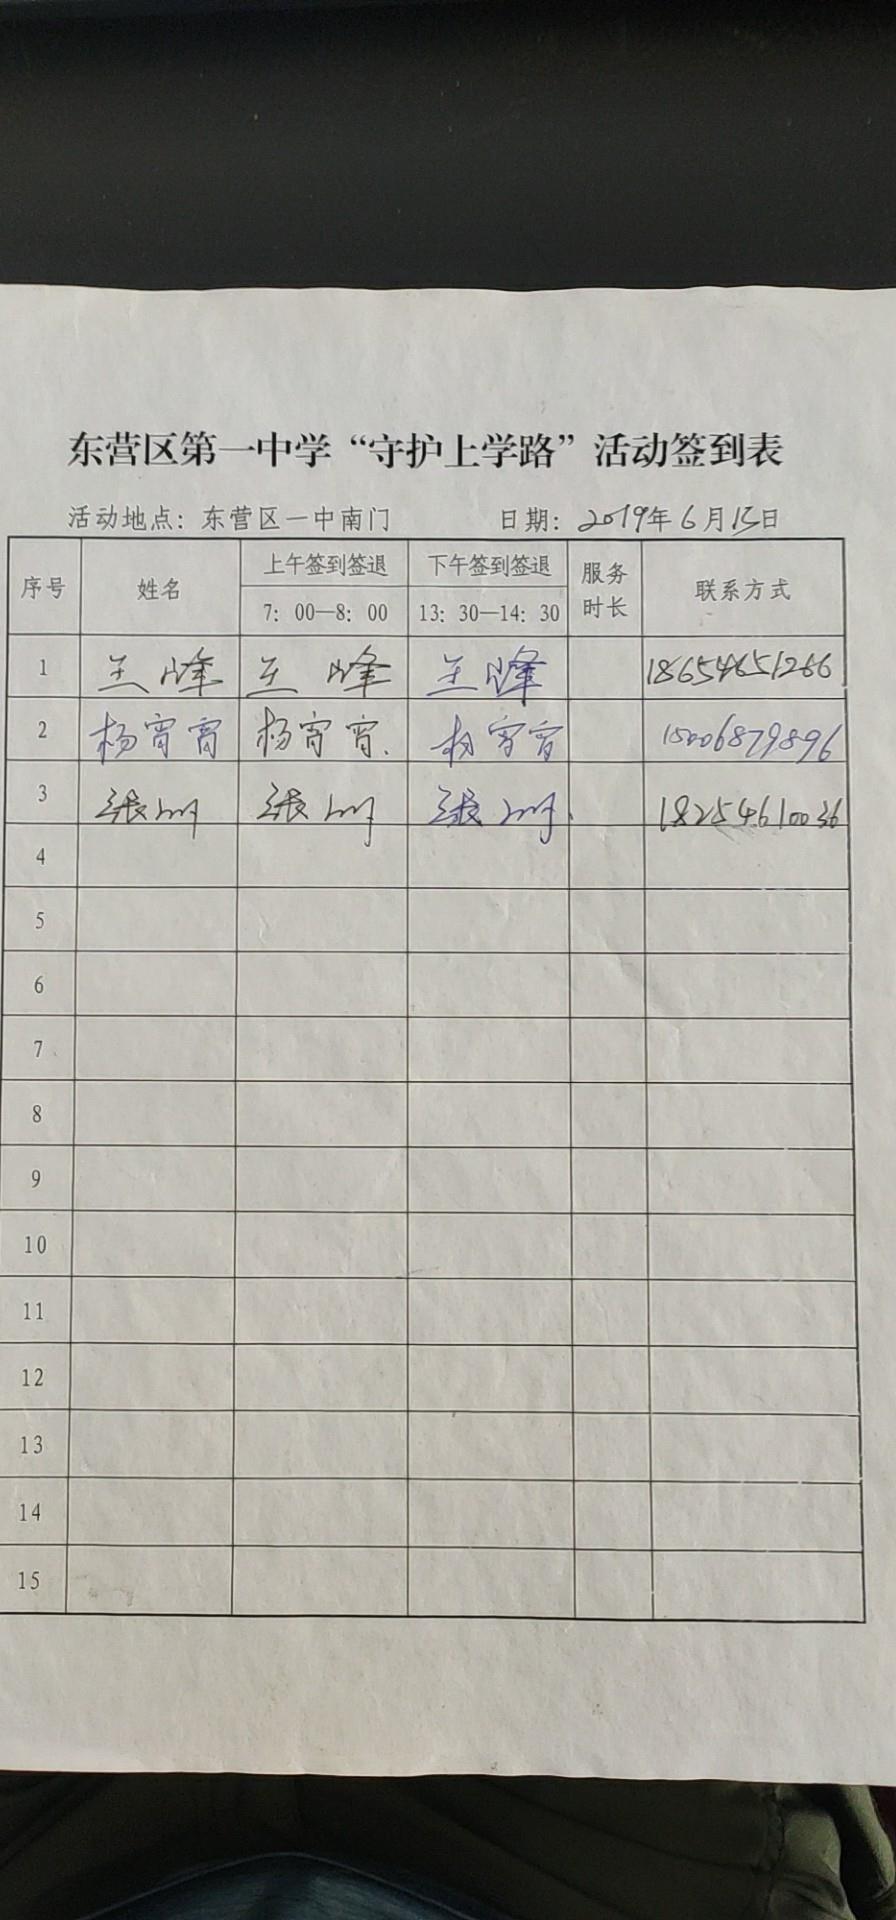 东营区第一中学“守护上学路”活动签到表
活动地点：东营区一中南门 日期：2019年6月13日
序号 姓名 上午签到签退 下午签到签退 服务时长 联系方式
7：00—8：00 13：30—14：30
1 王峰 王峰 王峰 18654651266
2 杨宵宵 杨宵宵. 杨宵宵 15006879896
3 张 张 张 18254610036
4
5
6
7
8
9
10
11
12
13
14
15